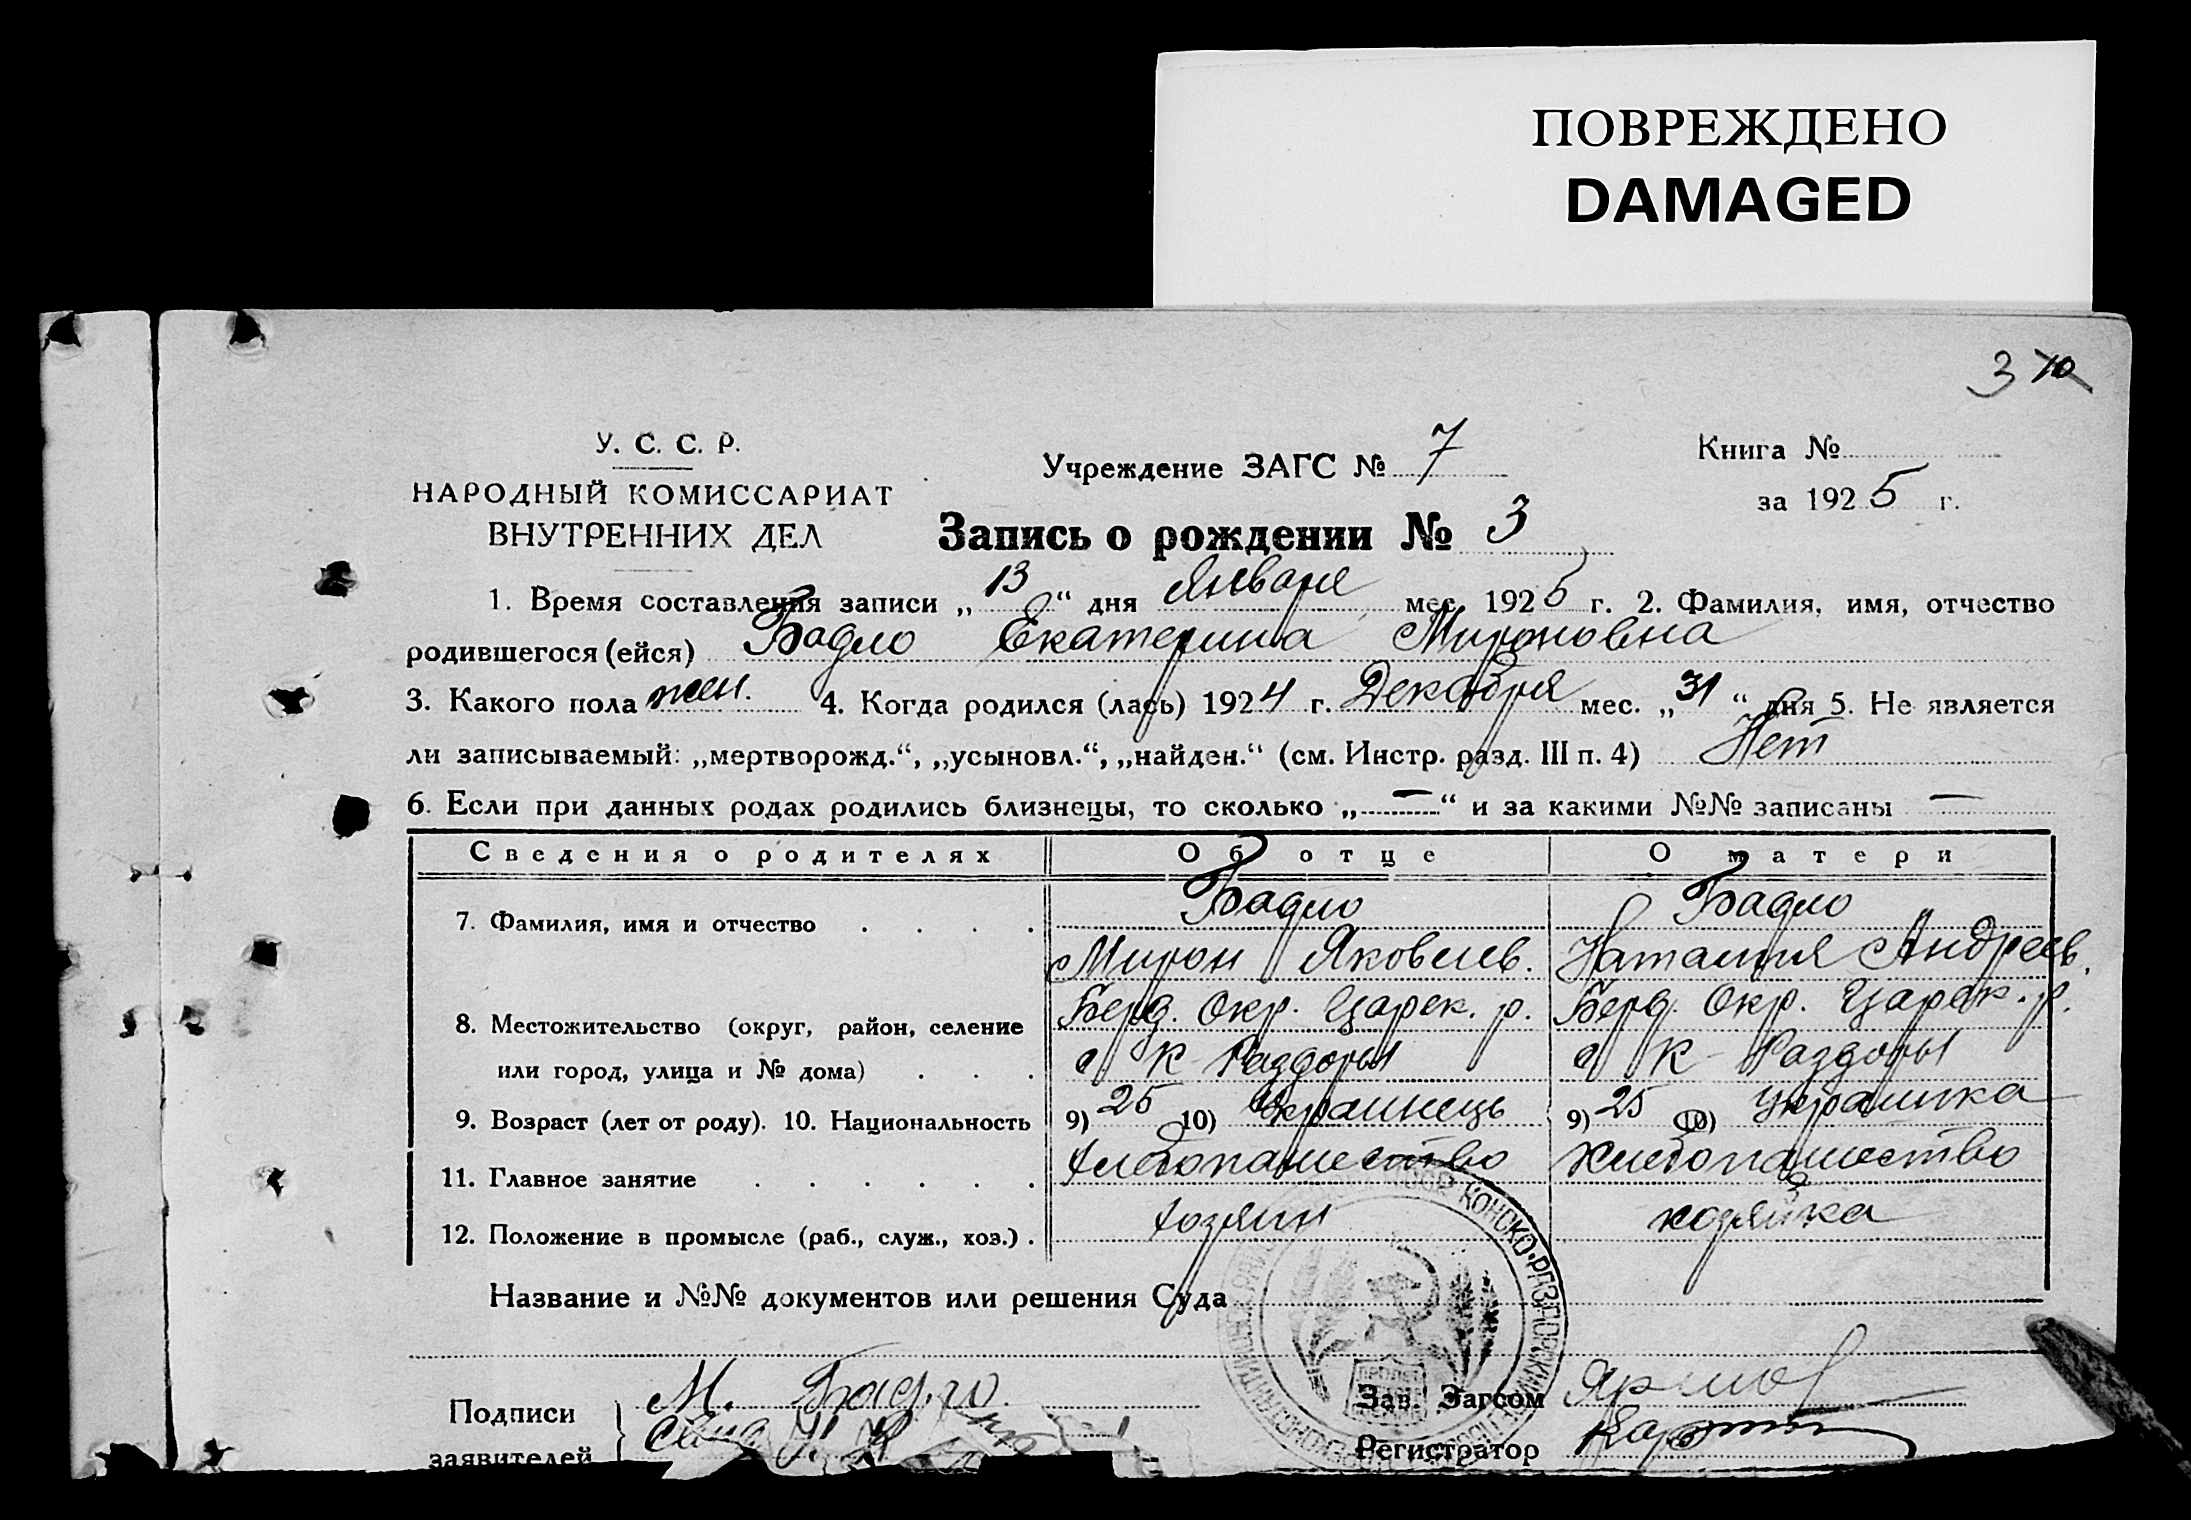 ПОВРЕЖДЕНО
DAMAGED
3 10
У. С. С. Р.
НАРОДНЫЙ КОМИССАРИАТ
ВНУТРЕННИХ ДЕЛ
Учреждение ЗАГС № 7
Книга №
за 1925 г.
Запись о рождении № 3
1. Время составления записи „13“ дня Января мес. 1925 г. 2. Фамилия, имя, отчество
родившегося (ейся) Бадло Екатерина Мироновна
3. Какого пола жен. 4. Когда родился (лась) 1924 г. Декабря мес. „31“ дня 5. Не является
ли записываемый: „мертворожд.“, „усыновл.“, „найден.“ (см. Инстр. разд. III п. 4) Нет
6. Если при данных родах родились близнецы, то сколько „—“ и за какими №№ записаны —
Сведения о родителях Об отце О матери
7. Фамилия, имя и отчество . . . . Бадло Бадло
Мирон Яковлев. Наталия Андреев.
8. Местожительство (округ, район, селение Берд. Окр. Царек. р. Берд. Окр. Царек. р.
или город, улица и № дома) . . . с К-Раздоры с К-Раздоры
9. Возраст (лет от роду). 10. Национальность 9) 26 10) Украинець 9) 25 10) Украинка
11. Главное занятие . . . . . . Хлебопашество Хлебопашество
12. Положение в промысле (раб., служ., хоз.) . хозяин хозяйка
Название и №№ документов или решения Суда
КОНСКО-РАЗДОРСК
Подписи М. Бадло Зав. Загсом
заявителей Регистратор